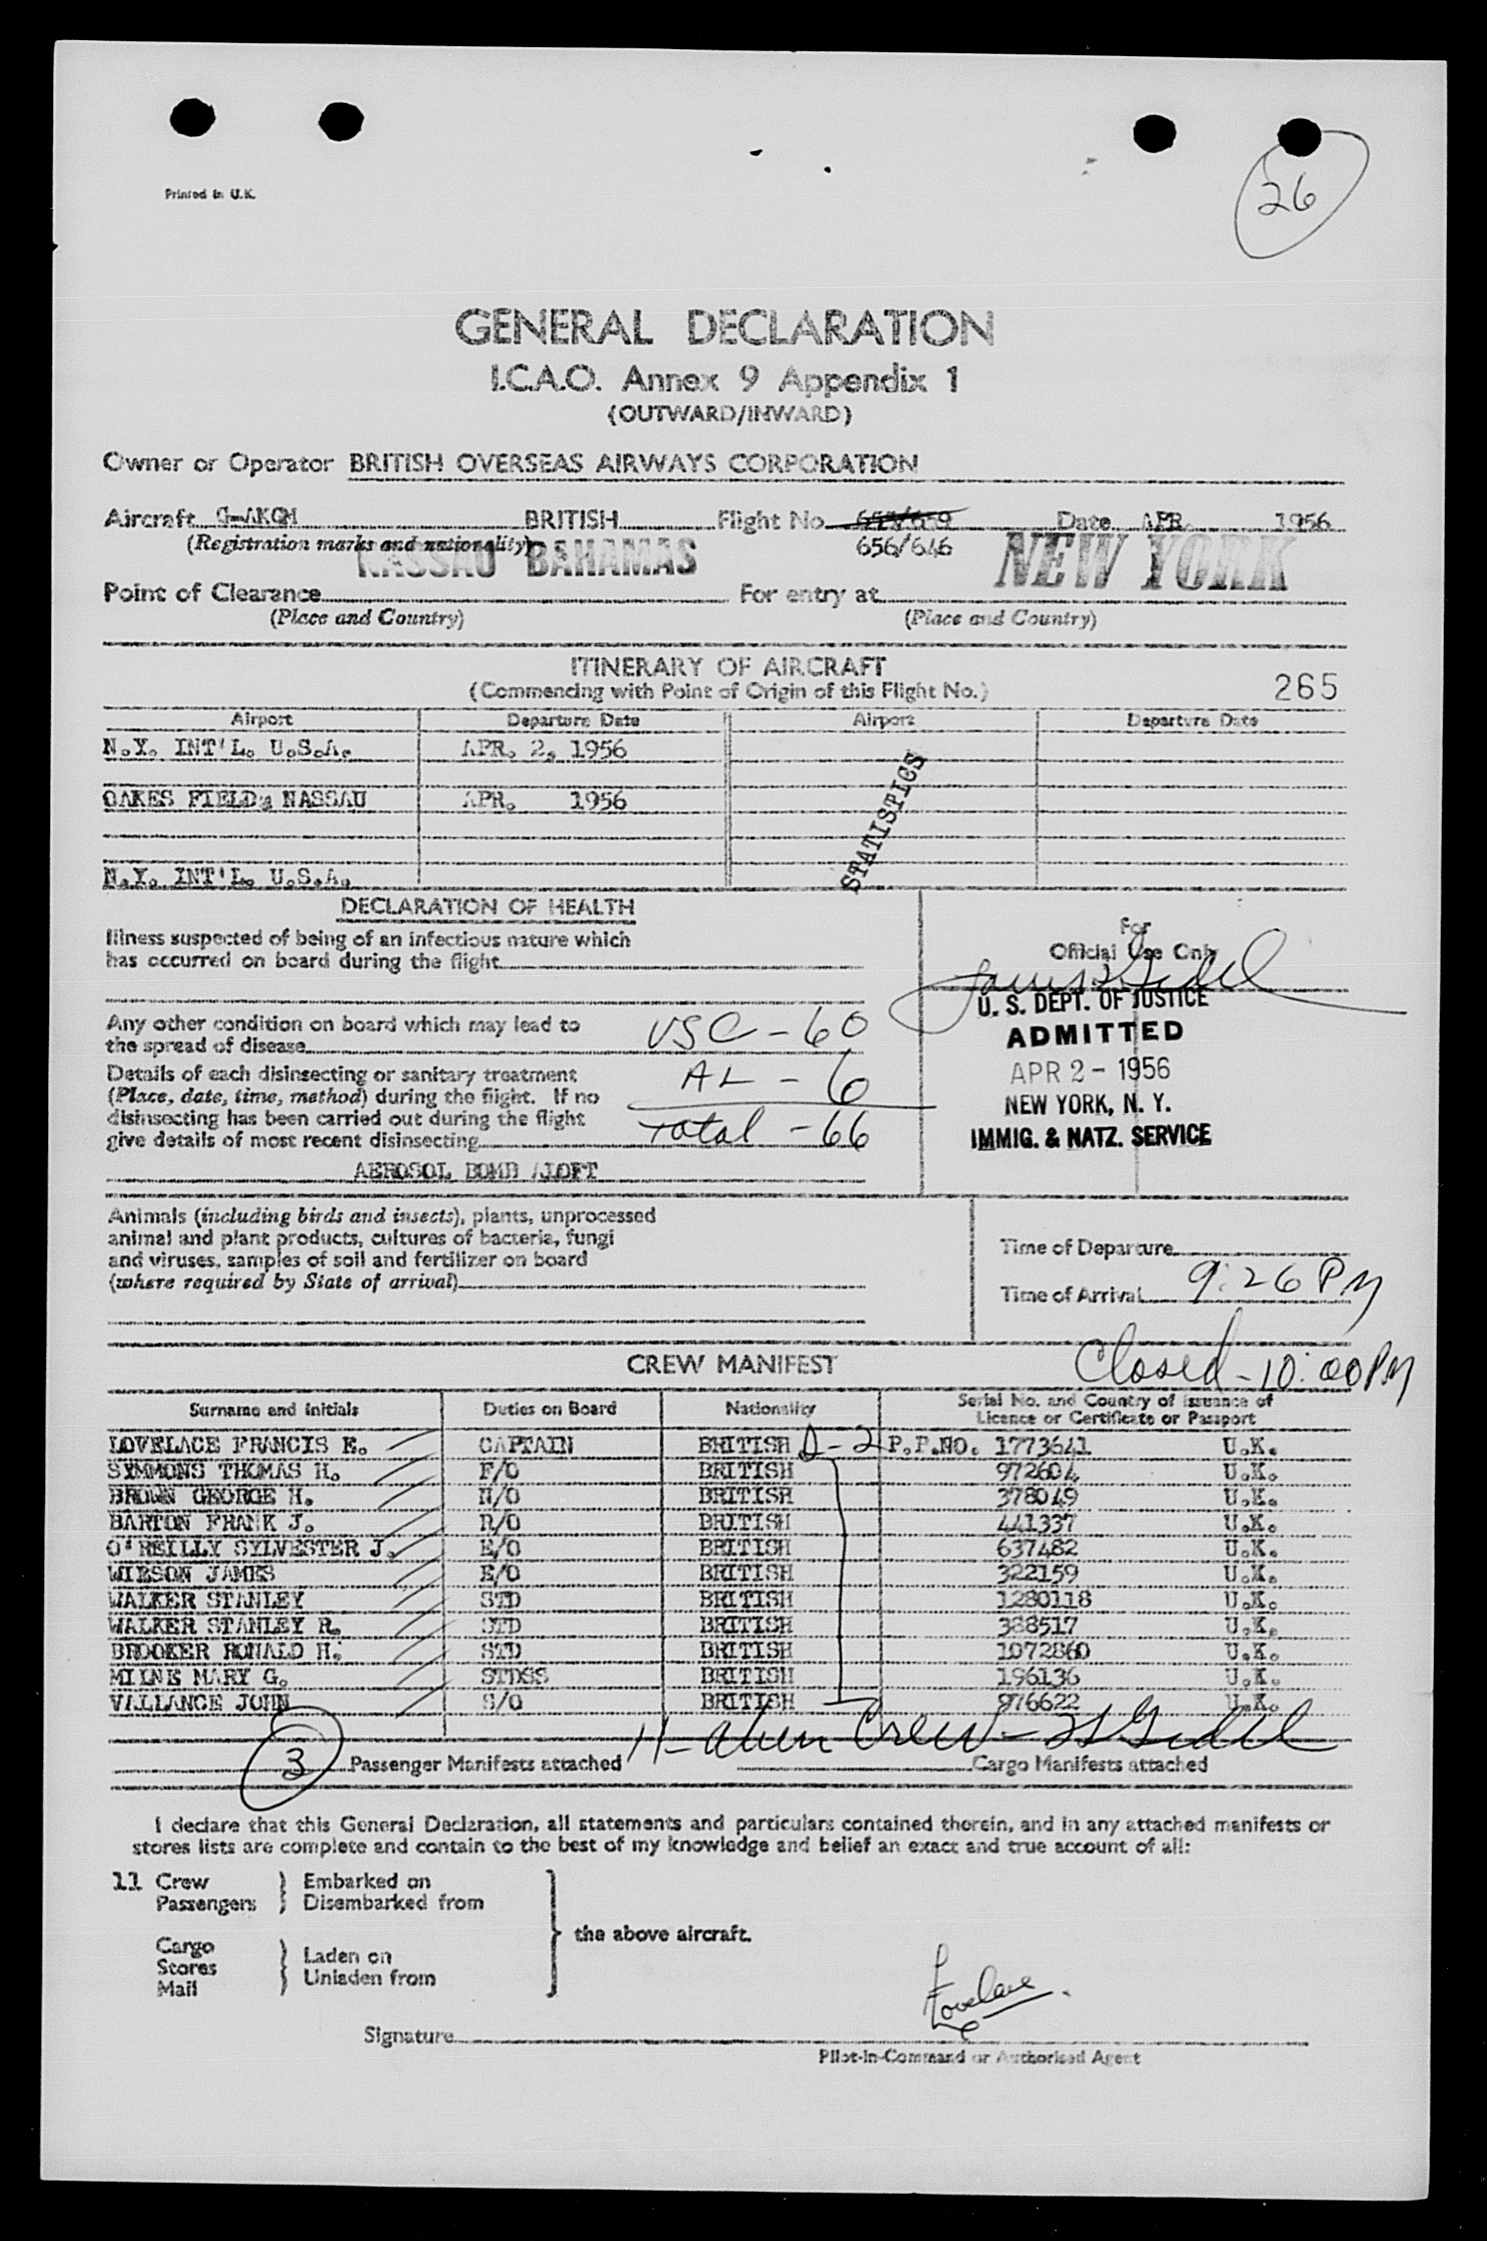 26
Printed in U.K.
GENERAL DECLARATION
I.C.A.O. Annex 9 Appendix 1
(OUTWARD/INWARD)
Owner or Operator BRITISH OVERSEAS AIRWAYS CORPORATION
Aircraft G-AKGM BRITISH Flight No. Date APR. 1956
(Registration marks and nationality) 656/646
Point of Clearance NASSAU BAHAMAS For entry at NEW YORK
(Place and Country) (Place and Country)
ITINERARY OF AIRCRAFT
(Commencing with Point of Origin of this Flight No.) 265
Airport Departure Date Airport Departure Date
N.Y. INT'L. U.S.A. APR. 2, 1956
OAKES FIELD, NASSAU APR. 1956
STATISTICS
N.Y. INT'L. U.S.A.
DECLARATION OF HEALTH
Illness suspected of being of an infectious nature which
has occurred on board during the flight
Any other condition on board which may lead to
the spread of disease
USC - 60
Details of each disinsecting or sanitary treatment
(Place, date, time, method) during the flight. If no
disinsecting has been carried out during the flight
give details of most recent disinsecting
AL - 6
Total - 66
AEROSOL BOMB ALOFT
For
Official Use Only
U. S. DEPT. OF JUSTICE
ADMITTED
APR 2 - 1956
NEW YORK, N. Y.
IMMIG. & NATZ. SERVICE
Animals (including birds and insects), plants, unprocessed
animal and plant products, cultures of bacteria, fungi
and viruses, samples of soil and fertilizer on board
(where required by State of arrival)
Time of Departure
Time of Arrival 9:26 PM
Closed - 10:00 PM
CREW MANIFEST
Surname and Initials Duties on Board Nationality Serial No. and Country of Issuance of
Licence or Certificate or Passport
LOVELACE FRANCIS E. CAPTAIN BRITISH D-2 P.P.NO. 1773641 U.K.
SYMMONS THOMAS H. F/O BRITISH 972604 U.K.
BROWN GEORGE H. N/O BRITISH 378049 U.K.
BARTON FRANK J. R/O BRITISH 441337 U.K.
O'REILLY SYLVESTER J. E/O BRITISH 637482 U.K.
WILSON JAMES E/O BRITISH 322159 U.K.
WALKER STANLEY STD BRITISH 1280118 U.K.
WALKER STANLEY R. STD BRITISH 388517 U.K.
BROOKER RONALD H. STD BRITISH 1072860 U.K.
MILNE MARY G. STDSS BRITISH 196136 U.K.
VALLANCE JOHN S/O BRITISH 976622 U.K.
11 - alien Crew -
3 Passenger Manifests attached Cargo Manifests attached
I declare that this General Declaration, all statements and particulars contained therein, and in any attached manifests or
stores lists are complete and contain to the best of my knowledge and belief an exact and true account of all:
11 Crew Embarked on
Passengers Disembarked from
the above aircraft.
Cargo
Stores Laden on
Mail Unladen from
Lovelace
Signature
Pilot-in-Command or Authorised Agent